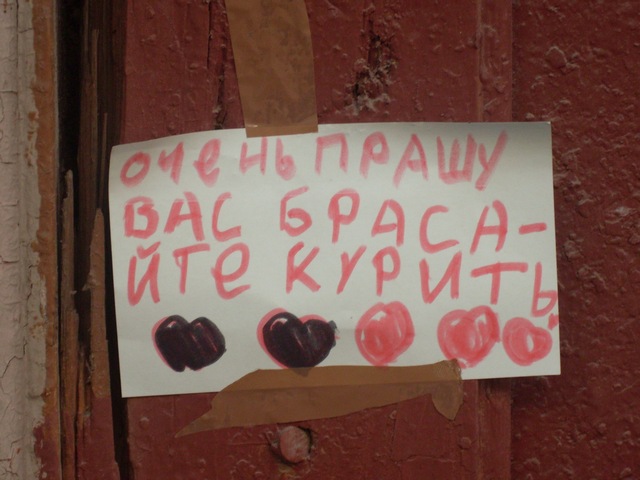 очень прашу
ВАС БРАСА-
ЙТе КУРИТЬ